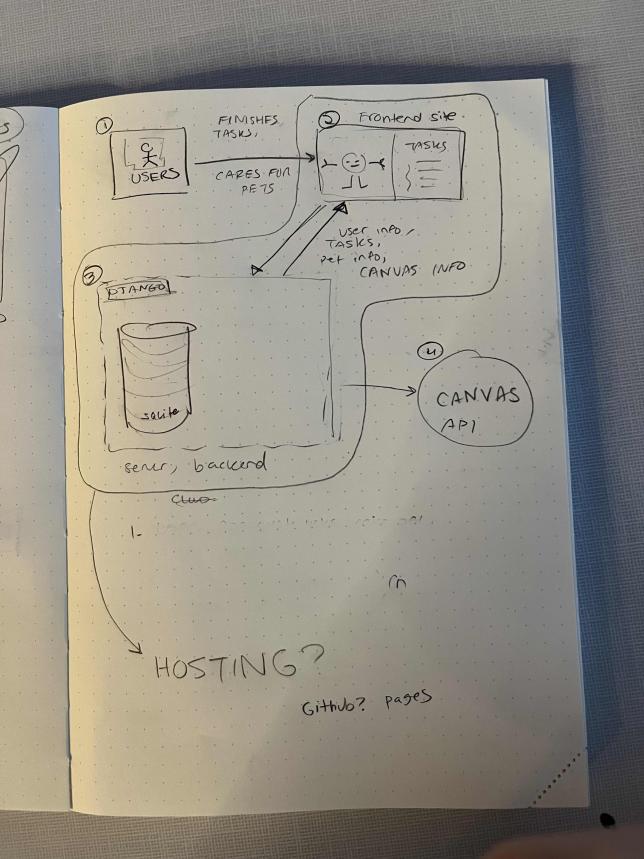 1
USERS
FINISHES
TASKS,
CARES FOR
PETS
2 Frontend site.
TASKS
user info,
TASKS,
pet info,
CANVAS INFO
3
DJANGO
sqlite
server, backend
4
CANVAS
API
1-
HOSTING?
Github? pages